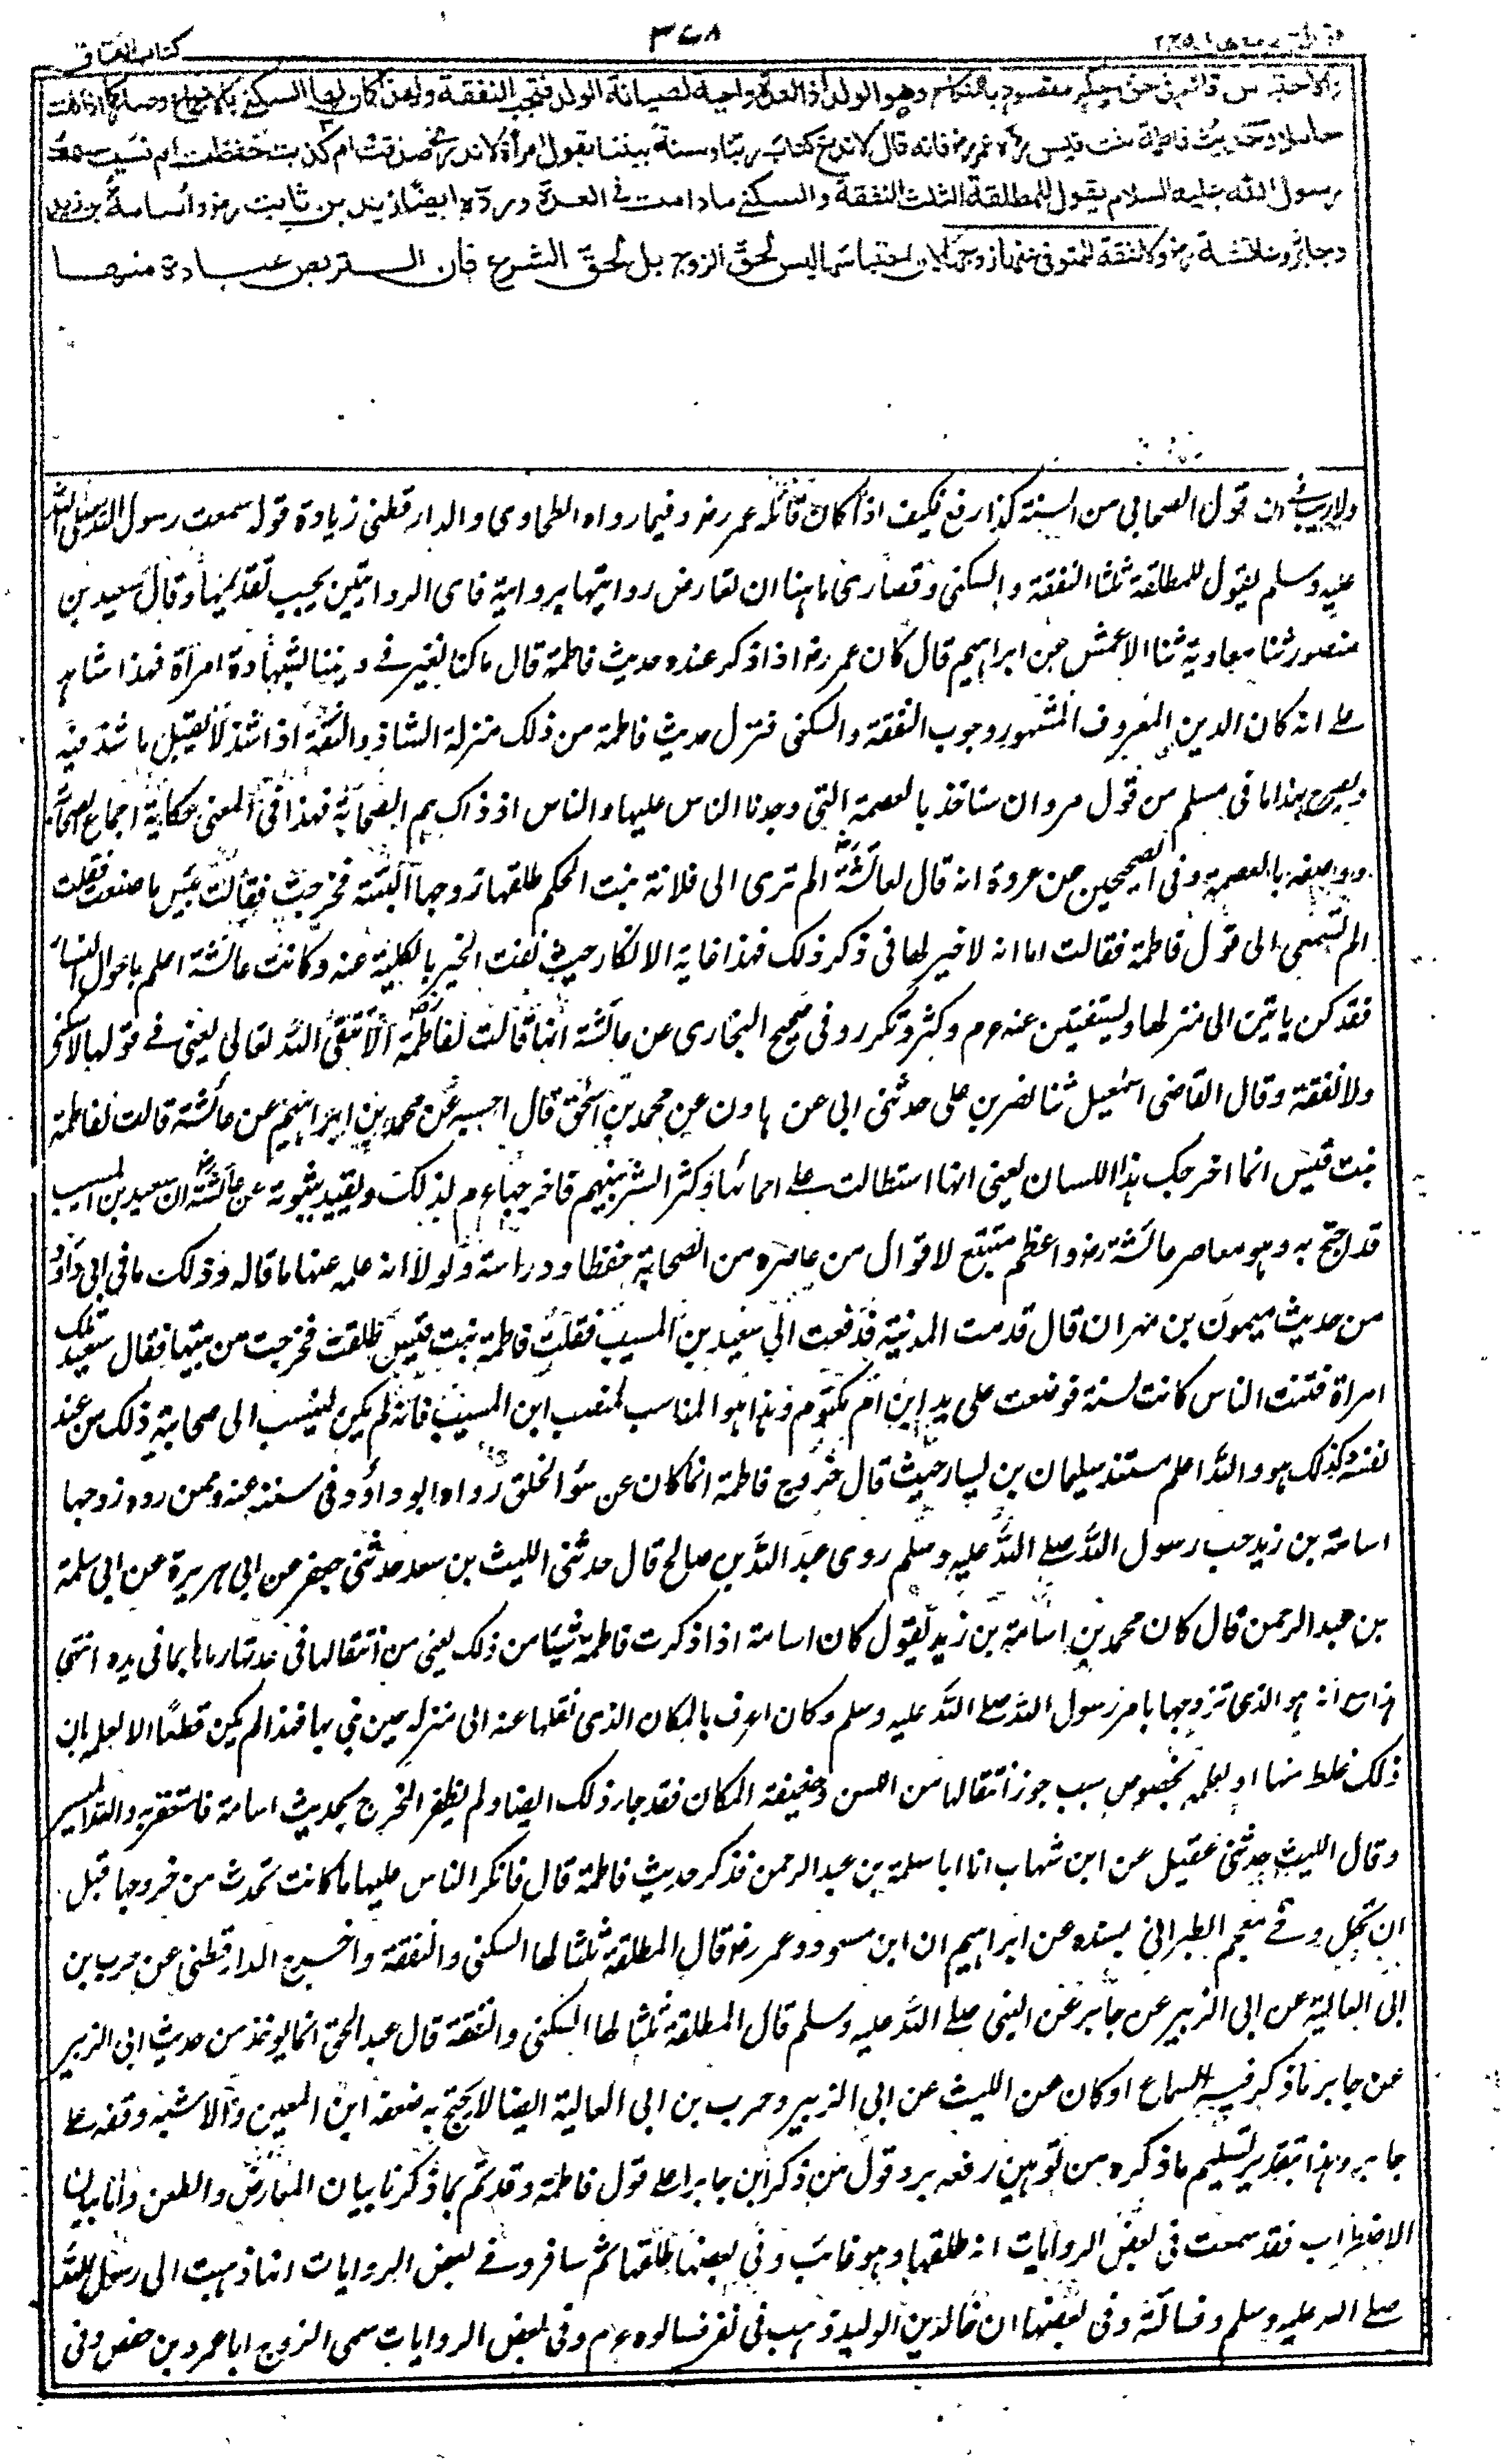 ٣٤٨
كتاب العتاق
والاحتباس قائم فى حق حكم مقصود بالنكاح وهو الولد اذ العدة واجبة لصيانة الولد فتجب النفقة ولهذا كان لها السكنى بالاجماع وصار كما اذا كانت
حاملا وحديث فاطمة بنت قيس رده عمر رضـ فانه قال لا ندع كتاب ربنا وسنة نبينا بقول امرأة لا ندرى صدقت ام كذبت حفظت ام نسيت سمعت
رسول الله عليه السلام يقول للمطلقة الثلث النفقة والسكنى ما دامت فى العدة ورده ايضا زيد بن ثابت رضـ واسامة بن زيد
وجابر وعائشة رضـ ولا نفقة للمتوفى عنها زوجها لان احتباسها ليس لحق الزوج بل لحق الشرع فان التربص عبادة منها
ولا ريب فى ان قول الصحابى من السنة كذا رفع فكيف اذا كان قائله عمر رضـ وفيما رواه الطحاوى والدارقطنى زيادة قوله سمعت رسول الله صلى الله
عليه وسلم يقول للمطلقة ثلثا النفقة والسكنى وقصارى ما هنا ان تعارض روايتها بروايته فاى الروايتين يجب تقديمها وقال سعيد بن
منصور ثنا معاوية ثنا الاعمش عن ابراهيم قال كان عمر رضـ اذا ذكر عنده حديث فاطمة قال ما كنا نغير فے ديننا بشهادة امرأة فهذا شاهد
علے انه كان الدين المعروف المشهور وجوب النفقة والسكنى فتنزل حديث فاطمة من ذلك منزلة الشاذ والثقة اذا شذ لا يقبل ما شذ فيه
ويصرح بهذا ما فى مسلم من قول مروان سناخذ بالعصمة التى وجدنا الناس عليها والناس اذ ذاك هم الصحابة فهذا فى المعنى حكاية اجماع الصحابة
ووصفه بالعصمة وفى الصحيحين عن عروة انه قال لعائشة الم ترى الى فلانة بنت الحكم طلقها زوجها البتة فخرجت فقالت بئس ما صنعت فقلت
الم تسمعى الى قول فاطمة فقالت اما انه لا خير لها فى ذكر ذلك فهذا غاية الانكار حيث نفت الخير بالكلية عنه وكانت عائشة اعلم باحوال النساء
فقد كن ياتين الى منزلها ويستفتين عنه عم وكثر وتكرر وفى صحيح البخارى عن عائشة انها قالت لفاطمة الا تتقى الله تعالى يعنى فے قولها لا سكنى
ولا نفقة وقال القاضى اسمعيل ثنا نصر بن على حدثنى ابى عن هارون عن محمد بن اسحق قال احسبه عن محمد بن ابراهيم عن عائشة قالت لفاطمة
بنت قيس انما اخرجك هذا اللسان يعنى انها استطالت علے احمائها وكثر الشر بينهم فاخرجها عم لذلك ويفيد ثبوته عن عائشة ان سعيد بن المسيب
قد احتج به وهو معاصر عائشة رضـ واعظم متتبع لاقوال من عاصره من الصحابة حفظا ودراسة ولولا انه علمه عنها ما قاله وذلك ما فى ابى داؤد
من حديث ميمون بن مهران قال قدمت المدينة فدفعت الى سعيد بن المسيب فقلت فاطمة بنت قيس طلقت فخرجت من بيتها فقال سعيد تلك
امرأة فتنت الناس كانت لسنة فوضعت على يد ابن ام مكتوم وهذا هو المناسب لمنصب ابن المسيب فانه لم يكن لينسب الى صحابية ذلك من عند
نفسه وكذلك هو والله اعلم مستند سليمان بن يسار حيث قال خروج فاطمة انما كان عن سوء الخلق رواه ابو داؤد فى سننه عنه وممن رده زوجها
اسامة بن زيد حب رسول الله صلے الله عليه وسلم روى عبد الله بن صالح قال حدثنى الليث بن سعد حدثنى جعفر عن ابى هريرة عن ابى سلمة
بن عبد الرحمن قال كان محمد بن اسامة بن زيد يقول كان اسامة اذا ذكرت فاطمة شيئا من ذلك يعنى من انتقالها فى عدتها رماها بما فى يده انتهى
هذا مع انه هو الذى تزوجها بامر رسول الله صلے الله عليه وسلم وكان اعرف بالمكان الذى نقلها عنه الى منزله حين بنى بها فهذا لم يكن قطعا الا لعلمه ان
ذلك غلط منها او لعلمه بخصوص سبب جوز انتقالها من اللسن وخيفة المكان فقد جاء ذلك ايضا ولم يظفر المخرج بحديث اسامة فاستغربه والله الميسر
وقال الليث حدثنى عقيل عن ابن شهاب انا ابا سلمة بن عبد الرحمن فذكر حديث فاطمة قال فانكر الناس عليها ما كانت تحدث من خروجها قبل
ان تحل وفے معجم الطبرانى بسنده عن ابراهيم ان ابن مسعود وعمر رضـ قال المطلقة ثلثا لها السكنى والنفقة واخرج الدارقطنى عن حرب بن
ابى العالية عن ابى الزبير عن جابر عن النبى صلے الله عليه وسلم قال المطلقة ثلثا لها السكنى والنفقة قال عبد الحق انما يوخذ من حديث ابى الزبير
عن جابر ما ذكر فيه السماع او كان عن الليث عن ابى الزبير وحرب بن ابى العالية ايضا لا يحتج به ضعفه ابن المعين والاشبه وقفه علے
جابر وهذا بتقدير تسليم ما ذكره من توهين رفعه يرد قول من ذكر ابن جابرا علے قول فاطمة وقد تم بما ذكرنا بيان المعارض والطعن واما بيان
الاضطراب فقد سمعت فى بعض الروايات انه طلقها وهو غائب وفى بعضها طلقها ثم سافر وفے بعض الروايات انها ذهبت الى رسول الله
صلے الله عليه وسلم فسالته وفى بعضها ان خالد بن الوليد ذهب فى نفر فسالوه عم وفى بعض الروايات سمى الزوج ابا عمرو بن حفص وفى